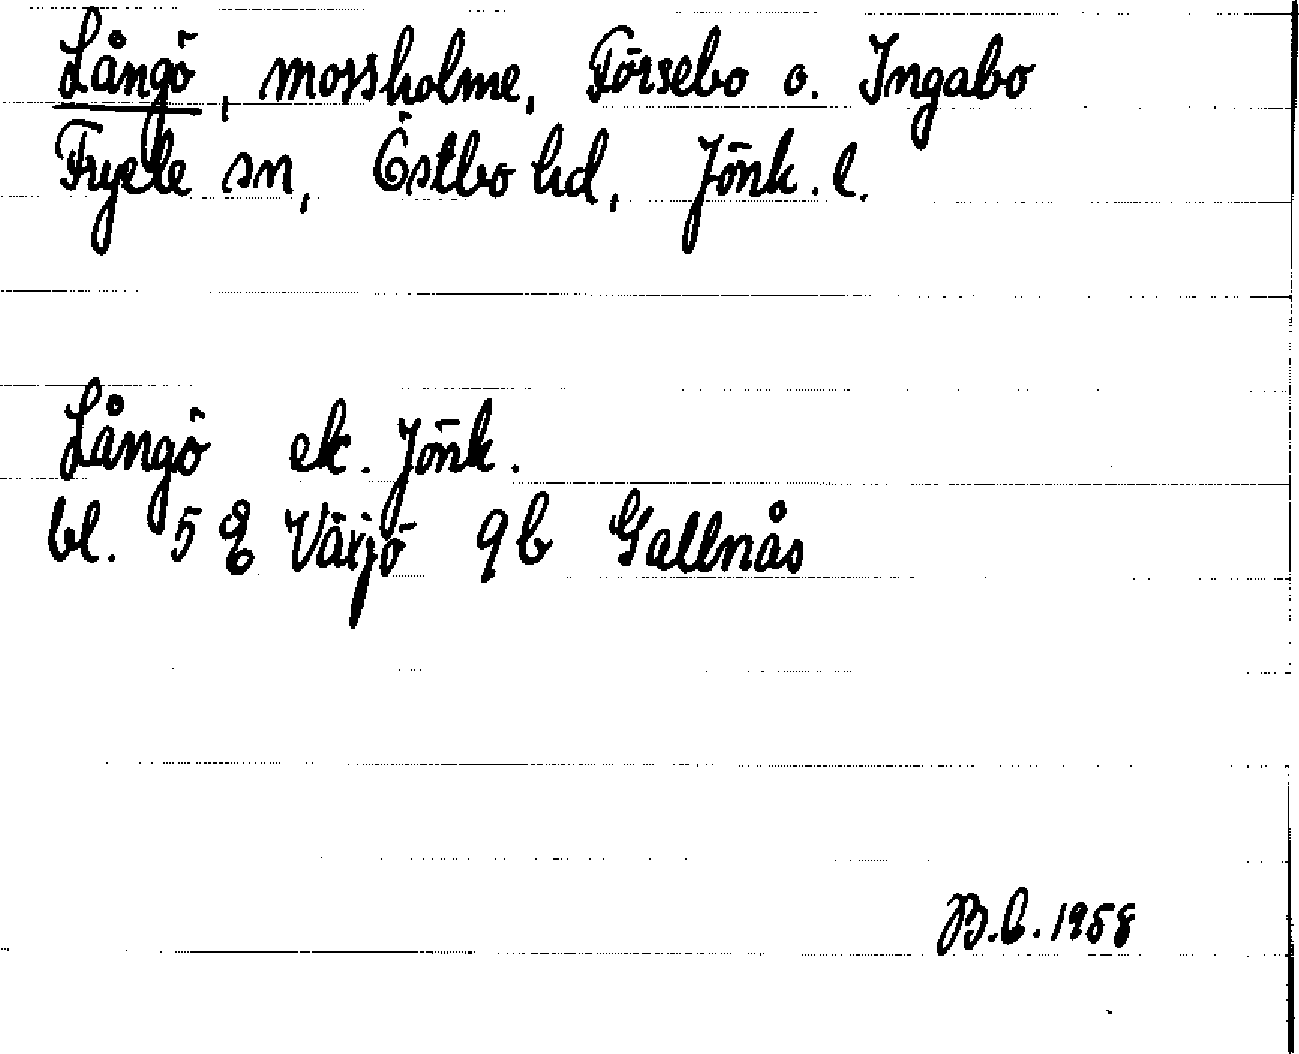 Långö, mossholme, Törsebo o. Ingabo
Fryele sn, Östbo hd, Jönk. l.
Långö ek. Jönk.
bl. 5 E Växjö 9 b Gallnås
B.C. 1958